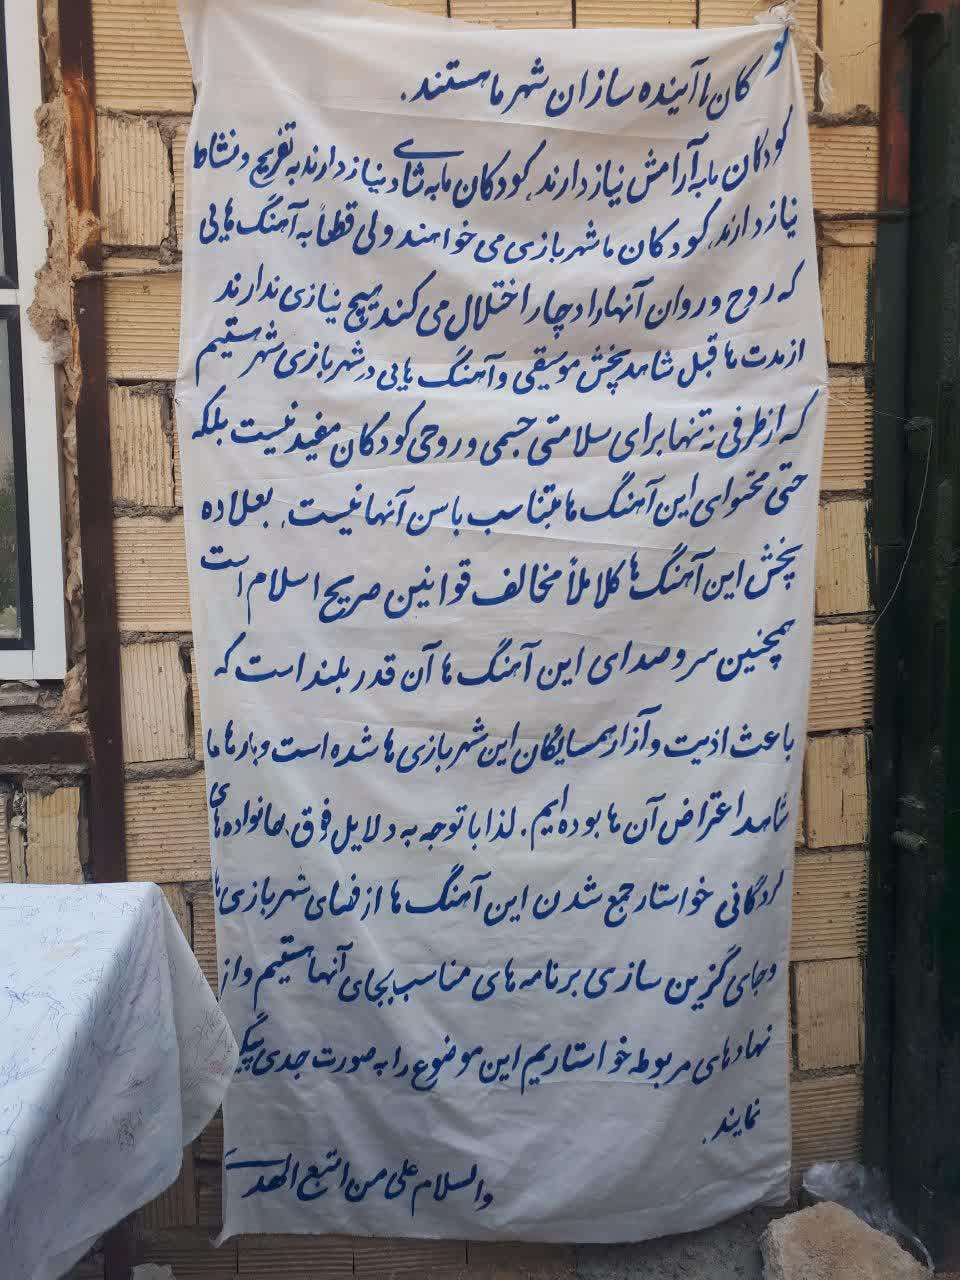 کودکان ما آینده سازان شهر ما هستند.
کودکان ما به آرامش نیاز دارند، کودکان ما به شادی نیاز دارند، به تفریح و نشاط
نیاز دارند، کودکان ما شهربازی می خواهند ولی قطعاً به آهنگ هایی
که روح و روان آنها را دچار اختلال می کند هیچ نیازی ندارند
از مدت ها قبل شاهد پخش موسیقی و آهنگ هایی در شهربازی شهر هستیم
که از طرفی نه تنها برای سلامتی جسمی و روحی کودکان مفید نیست بلکه
حتی محتوای این آهنگ ها متناسب با سن آنها نیست، بعلاوه
پخش این آهنگ ها کاملاً مخالف قوانین صریح اسلام است
همچنین سر و صدای این آهنگ ها آن قدر بلند است که
باعث اذیت و آزار همسایگان این شهربازی ها شده است و بارها ما
شاهد اعتراض آن ها بوده ایم. لذا با توجه به دلایل فوق، خانواده های
لردگانی خواستار جمع شدن این آهنگ ها از فضای شهربازی ها
و جای گزین سازی برنامه های مناسب بجای آنها هستیم و از
نهادهای مربوطه خواستاریم این موضوع را به صورت جدی پیگیری
نمایند.
والسلام علی من اتبع الهدی